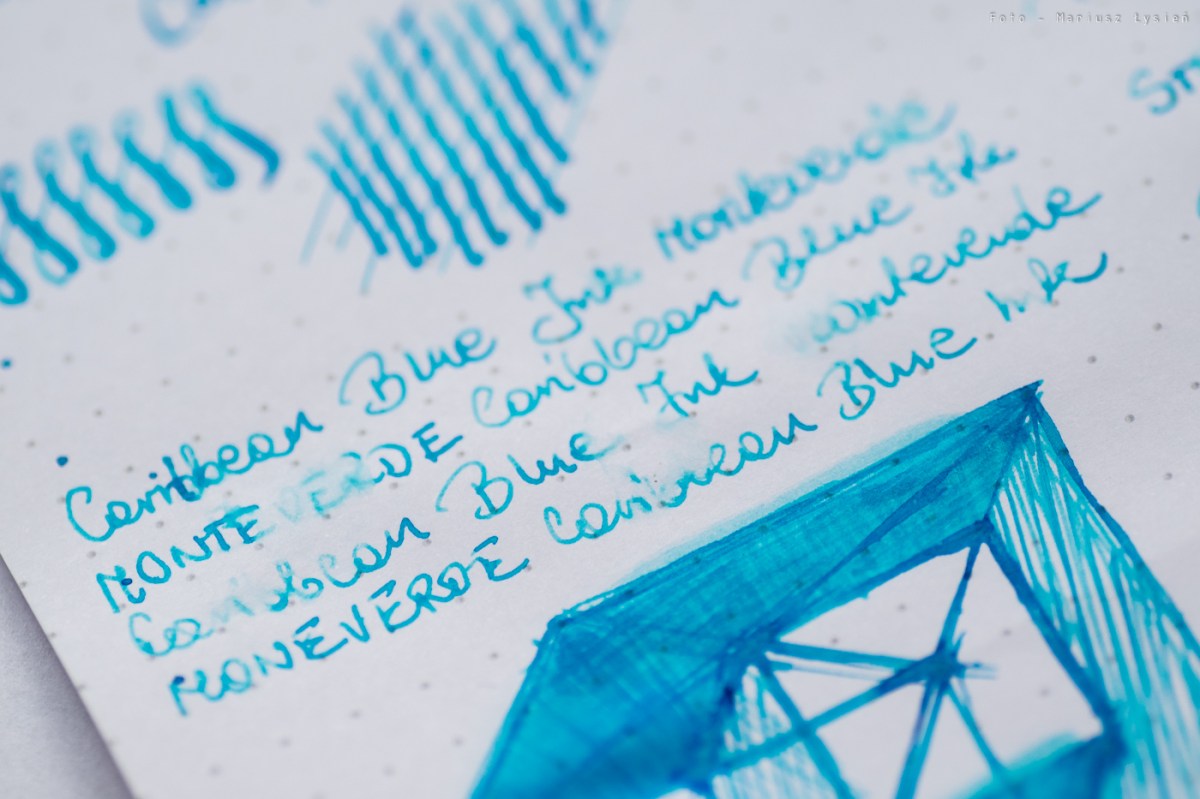 Foto - Mariusz Łysień
Caribbean Blue Ink Monteverde
MONTEVERDE Caribbean Blue Ink
Caribbean Blue Ink Monteverde
MONEVERDE Caribbean Blue Ink